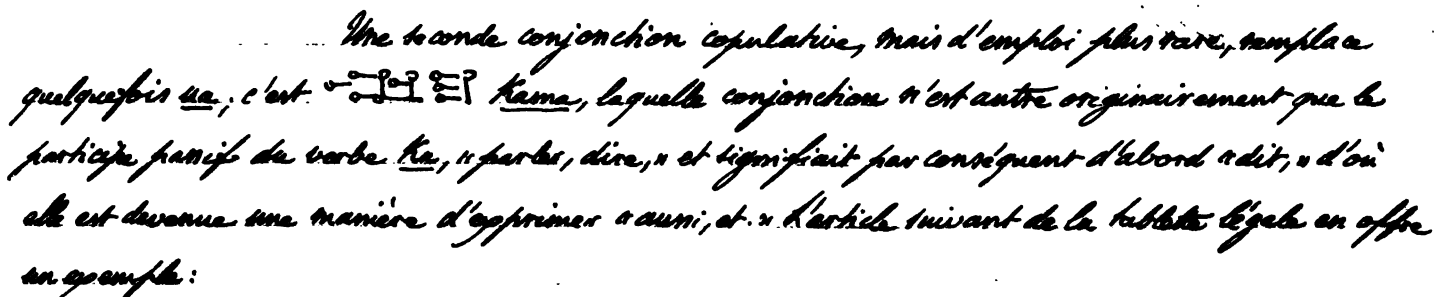 Une seconde conjonction copulative, mais d'emploi plus rare, remplace
quelquefois ua; c'est Kama, laquelle conjonction n'est autre originairement que le
participe passif du verbe Ka, « parler, dire, » et signifiait par conséquent d'abord « dit, » d'où
elle est devenue une manière d'exprimer « aussi, et. » L'article suivant de la tablette légale en offre
un exemple: